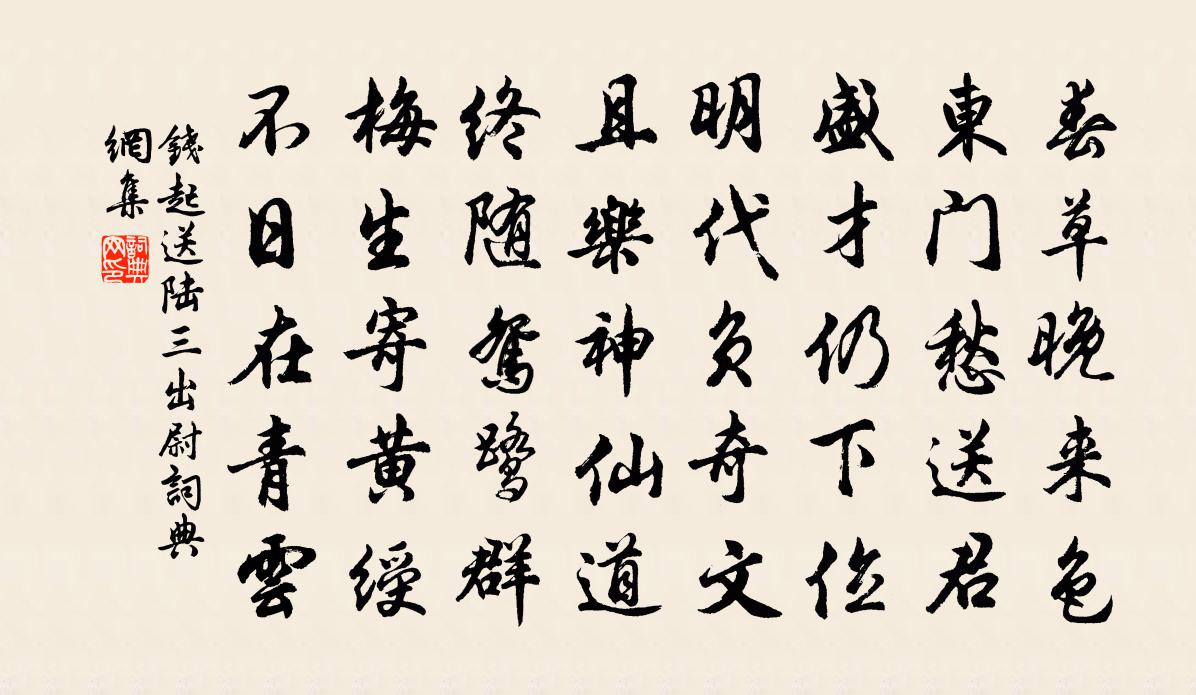 春草晚来色
東門愁送君
盛才仍下位
明代負奇文
且樂神仙道
终随鴛鷺群
梅生寄黄綬
不日在青雲
錢起送陆三出尉詞典
網集
詞典
网印